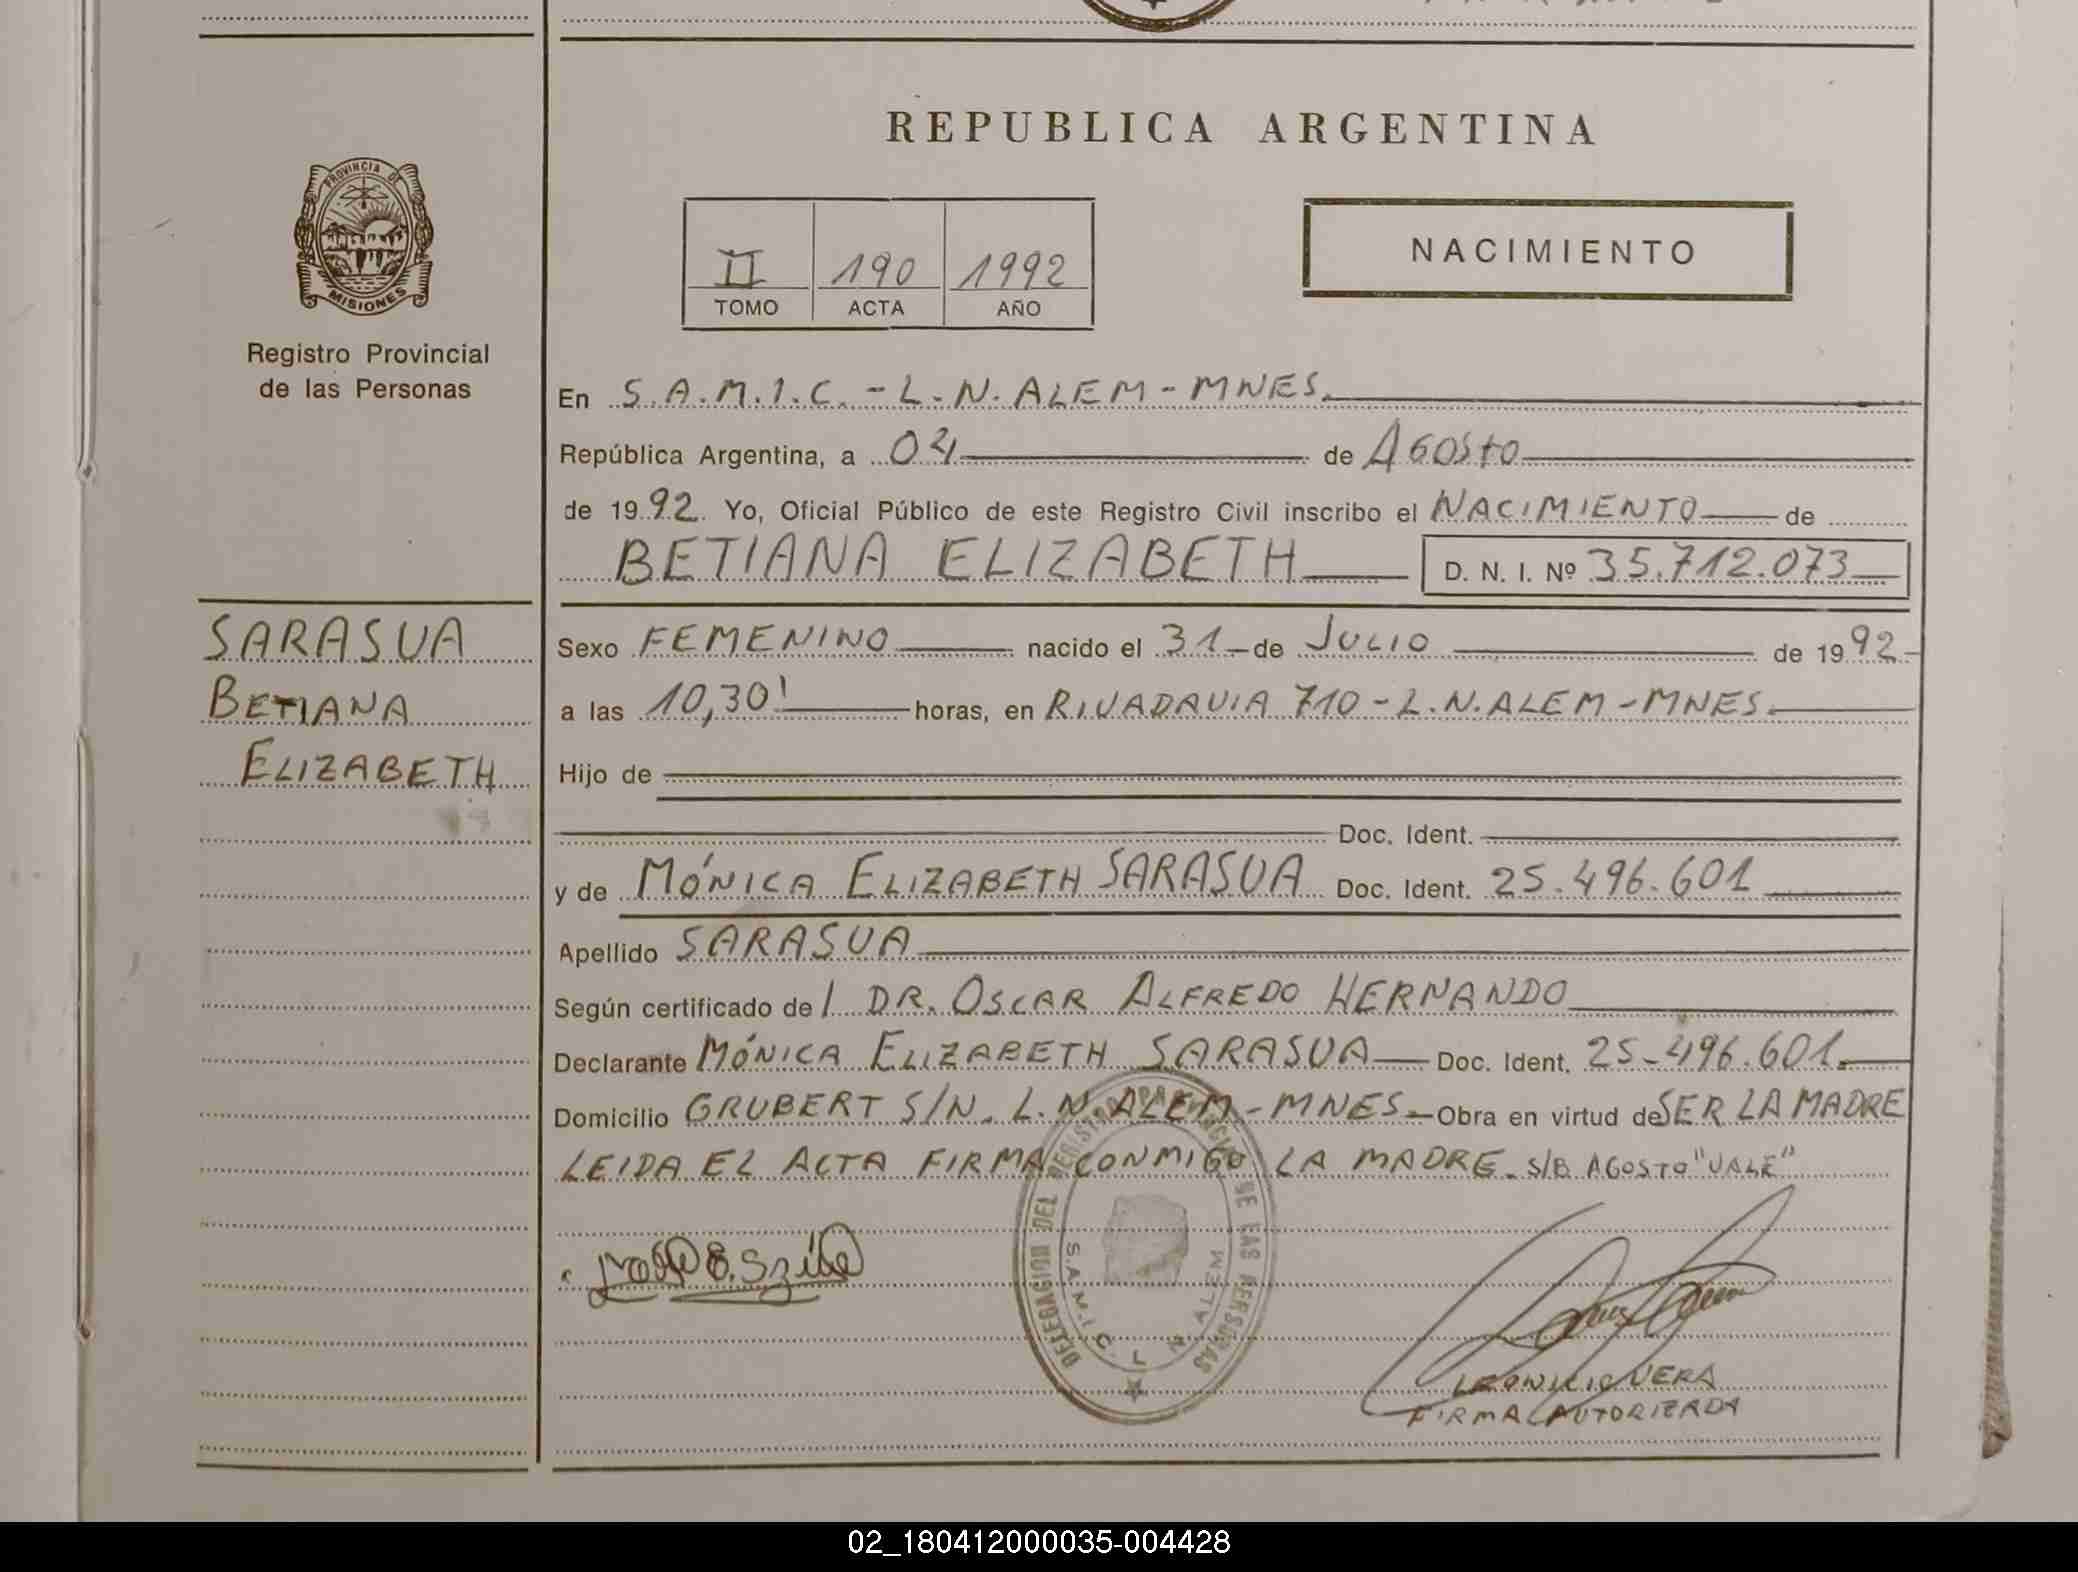 REPUBLICA ARGENTINA
PROVINCIA DE
MISIONES
Registro Provincial
de las Personas
II 190 1992
TOMO ACTA AÑO
NACIMIENTO
En S.A.M.I.C. - L.N. ALEM - MNES.
República Argentina, a 04 de AGOSTO
de 1992. Yo, Oficial Público de este Registro Civil inscribo el NACIMIENTO de
BETIANA ELIZABETH D. N. I. Nº 35.712.073
SARASUA
BETIANA
ELIZABETH
Sexo FEMENINO nacido el 31 de JULIO de 1992
a las 10,30' horas, en RIVADAVIA 710 - L.N. ALEM - MNES.
Hijo de
Doc. Ident.
y de MÓNICA ELIZABETH SARASUA Doc. Ident. 25.496.601
Apellido SARASUA
Según certificado de l DR. OSCAR ALFREDO HERNANDO
Declarante MÓNICA ELIZABETH SARASUA Doc. Ident. 25.496.601.
Domicilio GRUBERT S/N. L.N. ALEM - MNES. Obra en virtud de SER LA MADRE
LEIDA EL ACTA FIRMA CONMIGO LA MADRE. S/B AGOSTO "VALE"
DELEGACION DEL REGISTRO PROVINCIAL DE LAS PERSONAS
S.A.M.I.C. L N ALEM
VERA
FIRMA AUTORIZADA
02_180412000035-004428